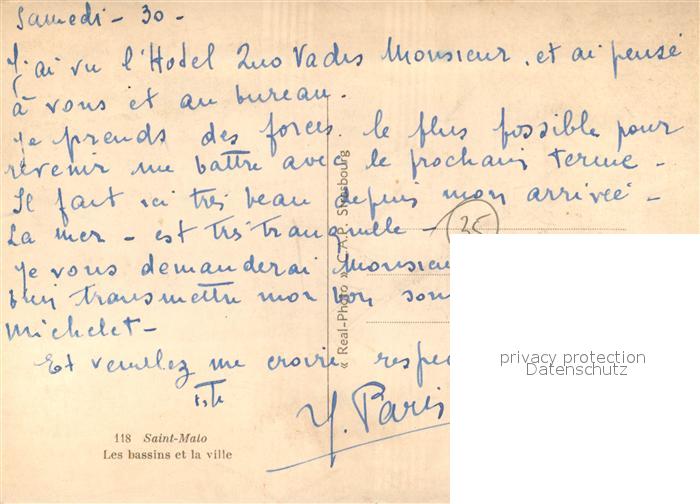 Samedi - 30 -
J'ai vu l'Hotel Quo Vadis Monsieur, et ai pensé
à vous et au bureau.
Je prends des forces le plus possible pour
revenir me battre avec le prochain terme -
Il fait ici très beau depuis mon arrivée -
La mer - est très tranquille -
35
Je vous demanderai Monsieur
bien transmettre mon bon sou
Michelet -
Et veuillez me croire respec
Y. Paris
118 Saint-Malo
Les bassins et la ville
« Real-Photo » C.A.P. Strasbourg
privacy protection
Datenschutz